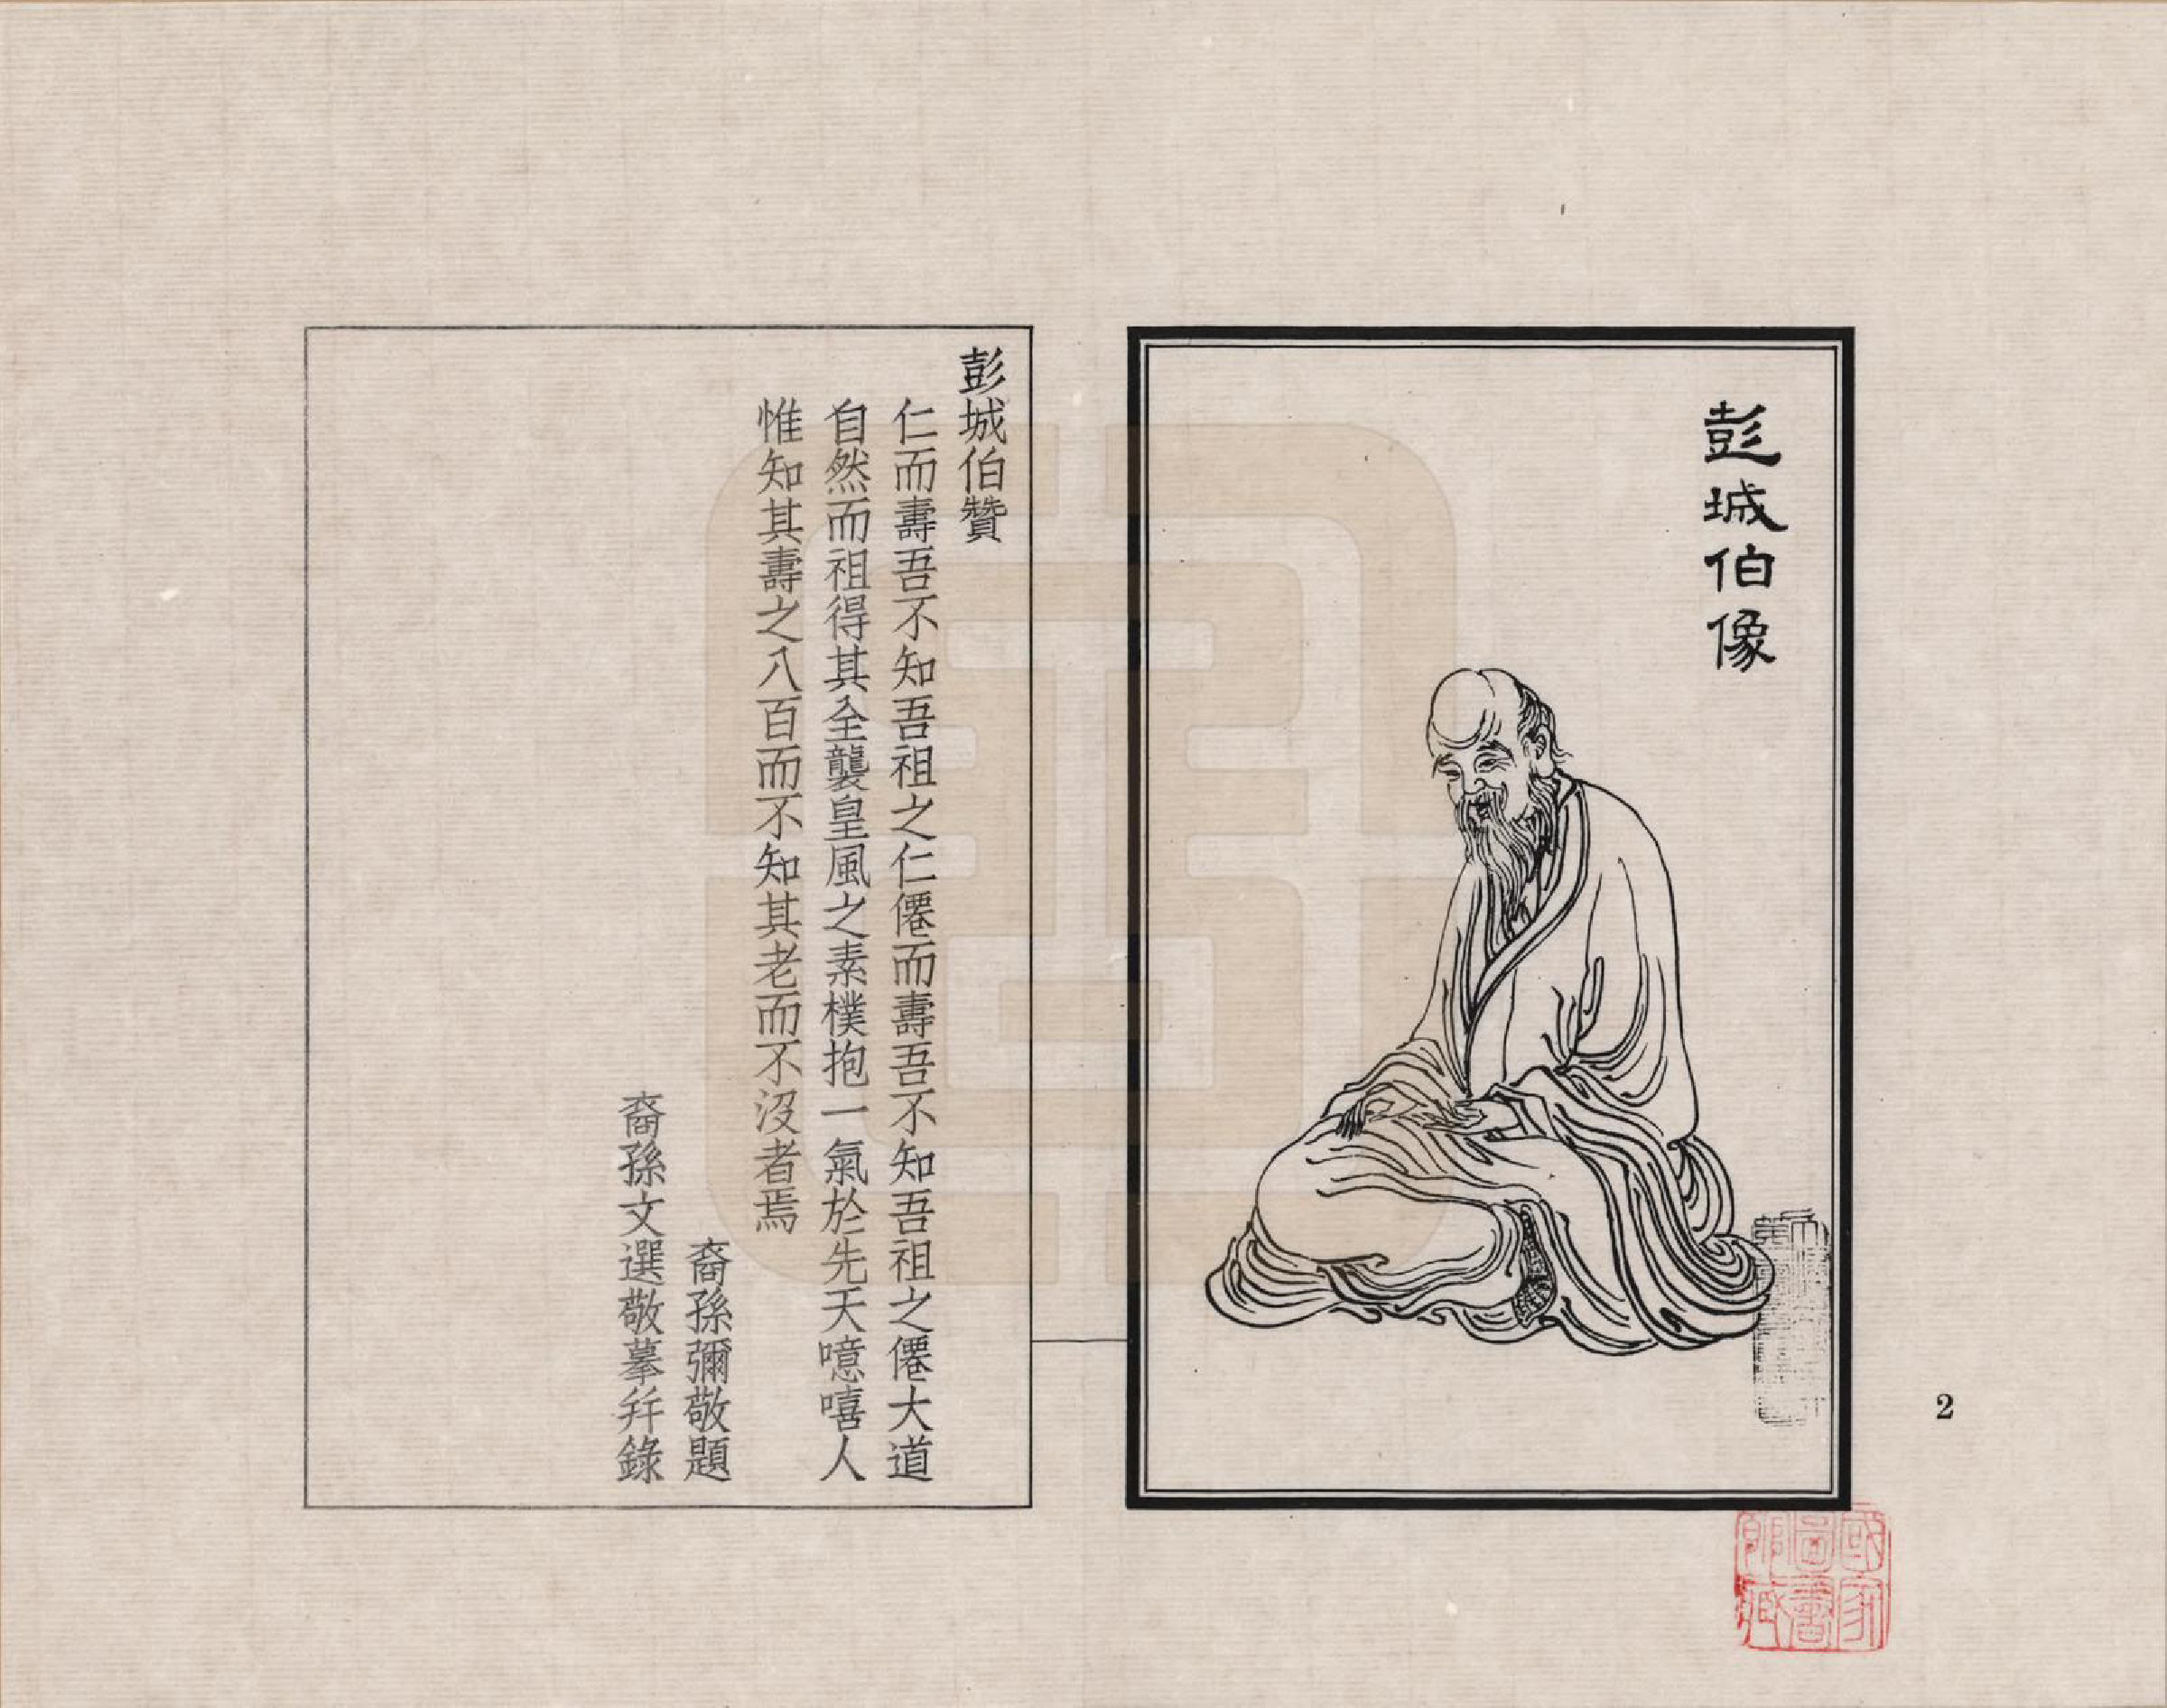 彭城伯像
2
國家
圖書
館藏
彭城伯贊
仁而壽吾不知吾祖之仁僊而壽吾不知吾祖之僊大道
自然而祖得其全襲皇風之素樸抱一氣於先天噫嘻人
惟知其壽之八百而不知其老而不沒者焉
裔孫彌敬題
裔孫文選敬摹幷錄